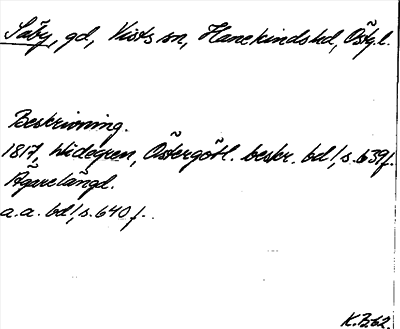 Säby, gd, Vists sn, Hanekinds hd, Östg.l.
Beskrivning.
1817, Widegren, Östergötl. beskr. bd 1, s. 639 f.
Ägarelängd.
a.a. bd 1, s. 640 f.
K.B.62.